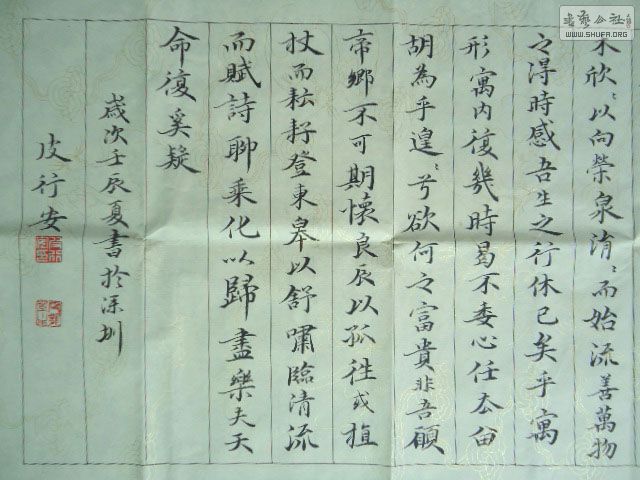 木欣〻以向榮泉涓〻而始流善萬物
之得時感吾生之行休已矣乎寓
形寓内復幾時曷不委心任去留
胡為乎遑〻兮欲何之富貴非吾願
帝鄉不可期懷良辰以孤往或植
杖而耘耔登東皋以舒嘯臨清流
而賦詩聊乘化以歸盡樂夫天
命復奚疑
歲次壬辰夏書於深圳
皮行安
書藝公社
WWW.SHUFA.ORG